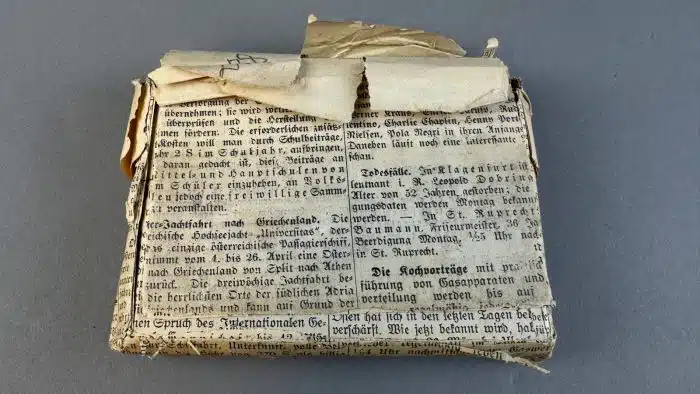 Versorgung der
übernehmen; sie wird weiter
überprüfen und die Herstellung
men fördern. Die erforderlichen
Kosten will man durch Schulbeiträge,
2 S im Schuljahr, aufbringen,
daran gedacht ist, diese Beiträge an
Mittel- und Hauptschulen von
Schüler einzuheben, an Volks-
jedoch eine freiwillige Samm-
zu veranstalten.
Jachtfahrt nach Griechenland. Die
Hochseejacht „Universitas“, der-
einzige österreichische Passagierschiff,
nimmt vom 4. bis 26. April eine Oster-
nach Griechenland von Split nach Athen
zurück. Die dreiwöchige Jachtfahrt be-
die herrlichsten Orte der südlichen Adria
und kann auf Grund der
Spruch des Internationalen Ge-
Werner Kraus,
Charlie Chaplin, Henny Port
Nielsen, Pola Negri in ihren Anfäng
Daneben läuft noch eine interessante
schau.
Todesfälle. In Klagenfurt ist
leutnant i. R. Leopold Dobrina
Alter von 52 Jahren gestorben; die
gungsdaten werden Montag bekannt
werden. — In St. Ruprecht
Baumann, Friseurmeister, 36 Ja
Beerdigung Montag, ½5 Uhr nach
in St. Ruprecht.
Die Kochvorträge mit
führung von Gasapparaten und
verteilung werden bis auf
hat sich in den letzten Tagen
verschärft. Wie jetzt bekannt wird, hat